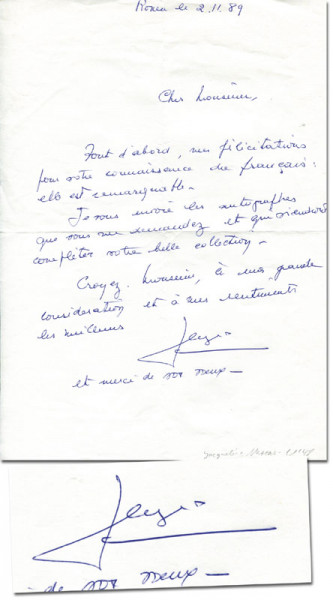 le 2.11.89
Cher Monsieur,
Tout d'abord, mes félicitations
pour votre connaissance du français :
elle est remarquable.
Je vous envoie les autographes
que vous me demandez et qui viendront
compléter votre belle collection.
Croyez, Monsieur, à ma grande
considération et à mes sentiments
les meilleurs
et merci de vos vœux -
de vos vœux -